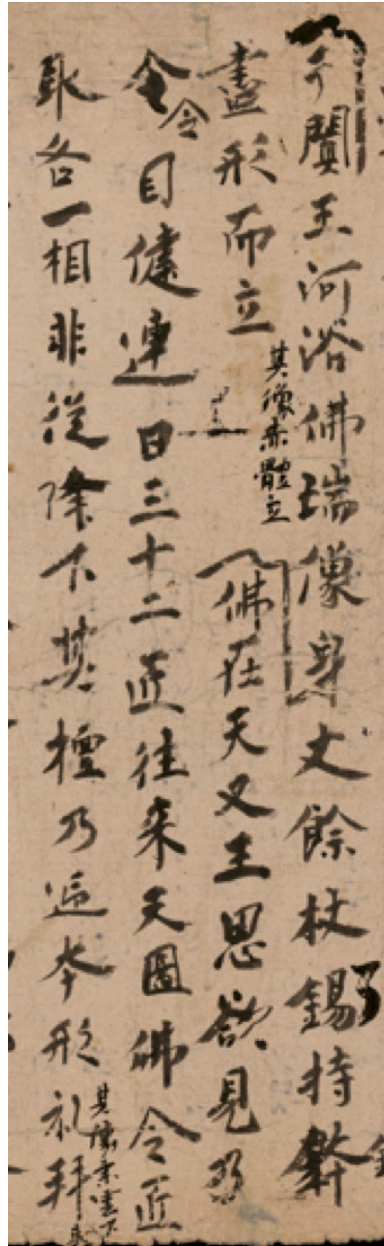 于闐王河浴佛瑞像身丈餘杖錫持
盡形而立 其像赤體立 佛在天又王思欲見乃
令目健連日三十二匠往来天圖佛令匠
取各一相非從降下其檀乃迎本形礼拜 其像